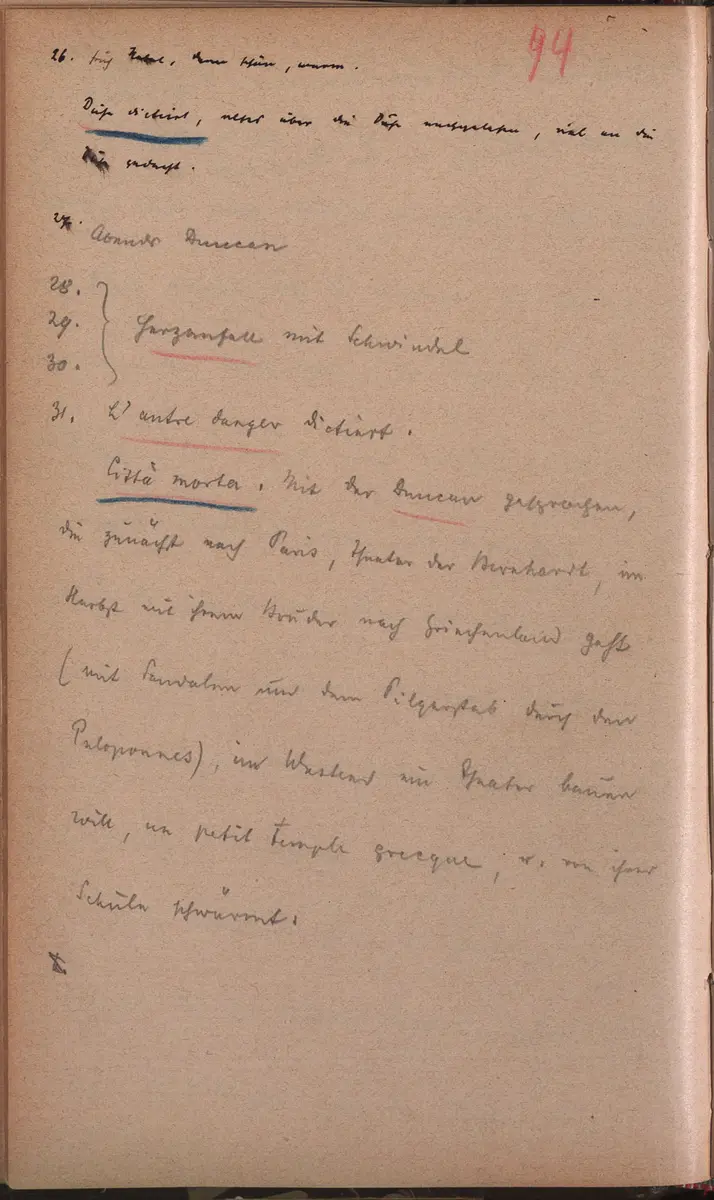 94
26. früh Nebel, dann schön, warm.
Duse dictiert, altes über die Duse nachgelesen, viel an die
Duse gedacht.
27. Abends Duncan
28.
29. Herzanfall mit Schwindel
30.
31. L'autre danger dictiert.
Città morta. Mit der Duncan gesprochen,
die zunächst nach Paris, Theater der Bernhardt, im
Herbst mit ihrem Bruder nach Griechenland geht
(mit Sandalen und dem Pilgerstab durch den
Peloponnes), im Westend ein Theater bauen
will, un petit temple grecque, u. von ihrer
Schule schwärmt.